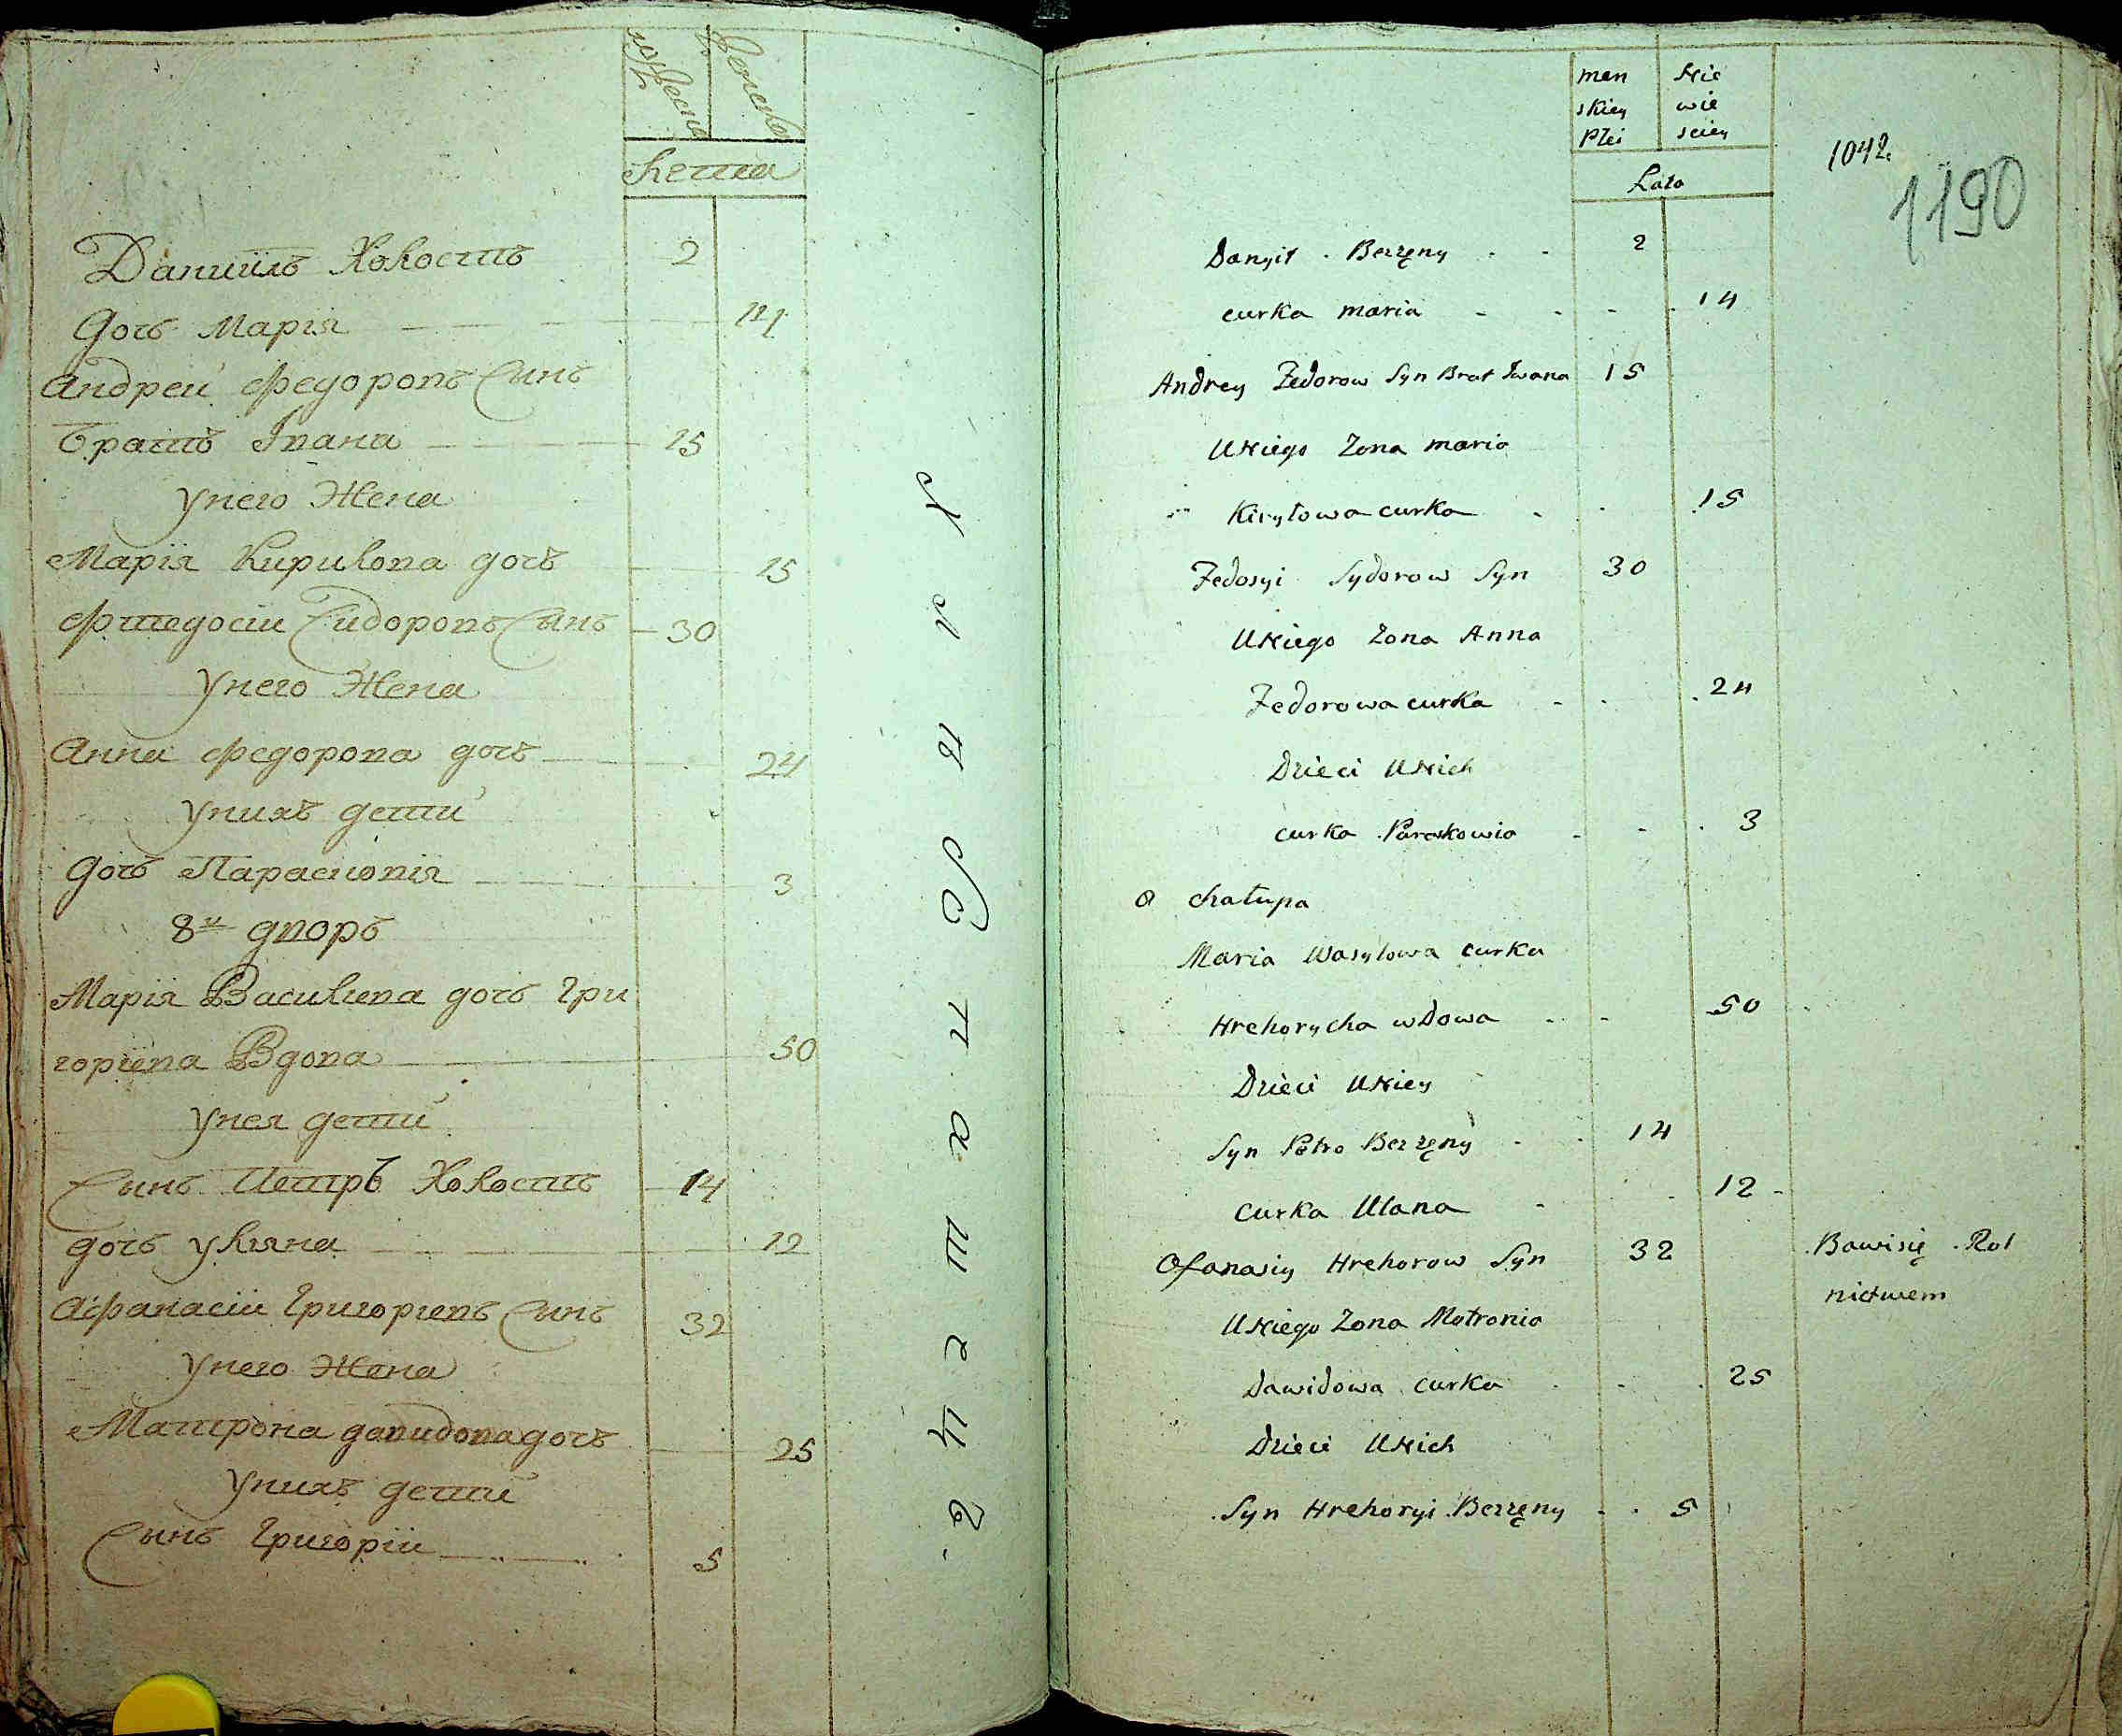 Мужеска
Женска
Лета
Даниилъ Холостъ 2
Дочь Марія 14
Андреи Федоровъ Сынъ
Братъ Івана 15
У него Жена
Марія Кирилова дочь 15
Фтедосіи Сидоровъ Сынъ 30
У него Жена
Анна Федорова дочь 24
У нихъ дети
Дочь Парасковія 3
8й дворъ
Марія Василиева дочь Гри
гориева Вдова 50
У нея дети
Сынъ Петръ Холостъ 14
дочь Уляна 12
Афанасіи Григориевъ Сынъ 32
У него Жена
Матрона давидова дочь 25
У нихъ дети
Сынъ Григоріи 5
men Nie
skiey wie
Płci sciey
Lata
1042.
1190
Danyił Bezżęny 2
curka maria 14
Andrey Fedorow Syn Brat Iwana 15
U Niego Zona maria
Kiryłowa curka 15
Fedosyi Sydorow Syn 30
U Niego Zona Anna
Fedorowa curka 24
Dzieci U Nich
curka Paraskowia 3
8 chałupa
Maria Wasylowa curka
Hrehorycha wdowa 50
Dzieci U Niey
Syn Petro Bezżęny 14
curka Ulana 12
Ofanasiy Hrehorow Syn 32 Bawi się Rol
nictwem
U Niego Zona Matronia
Dawidowa curka 25
Dzieci U Nich
Syn Hrehoryi Bezżęny 5